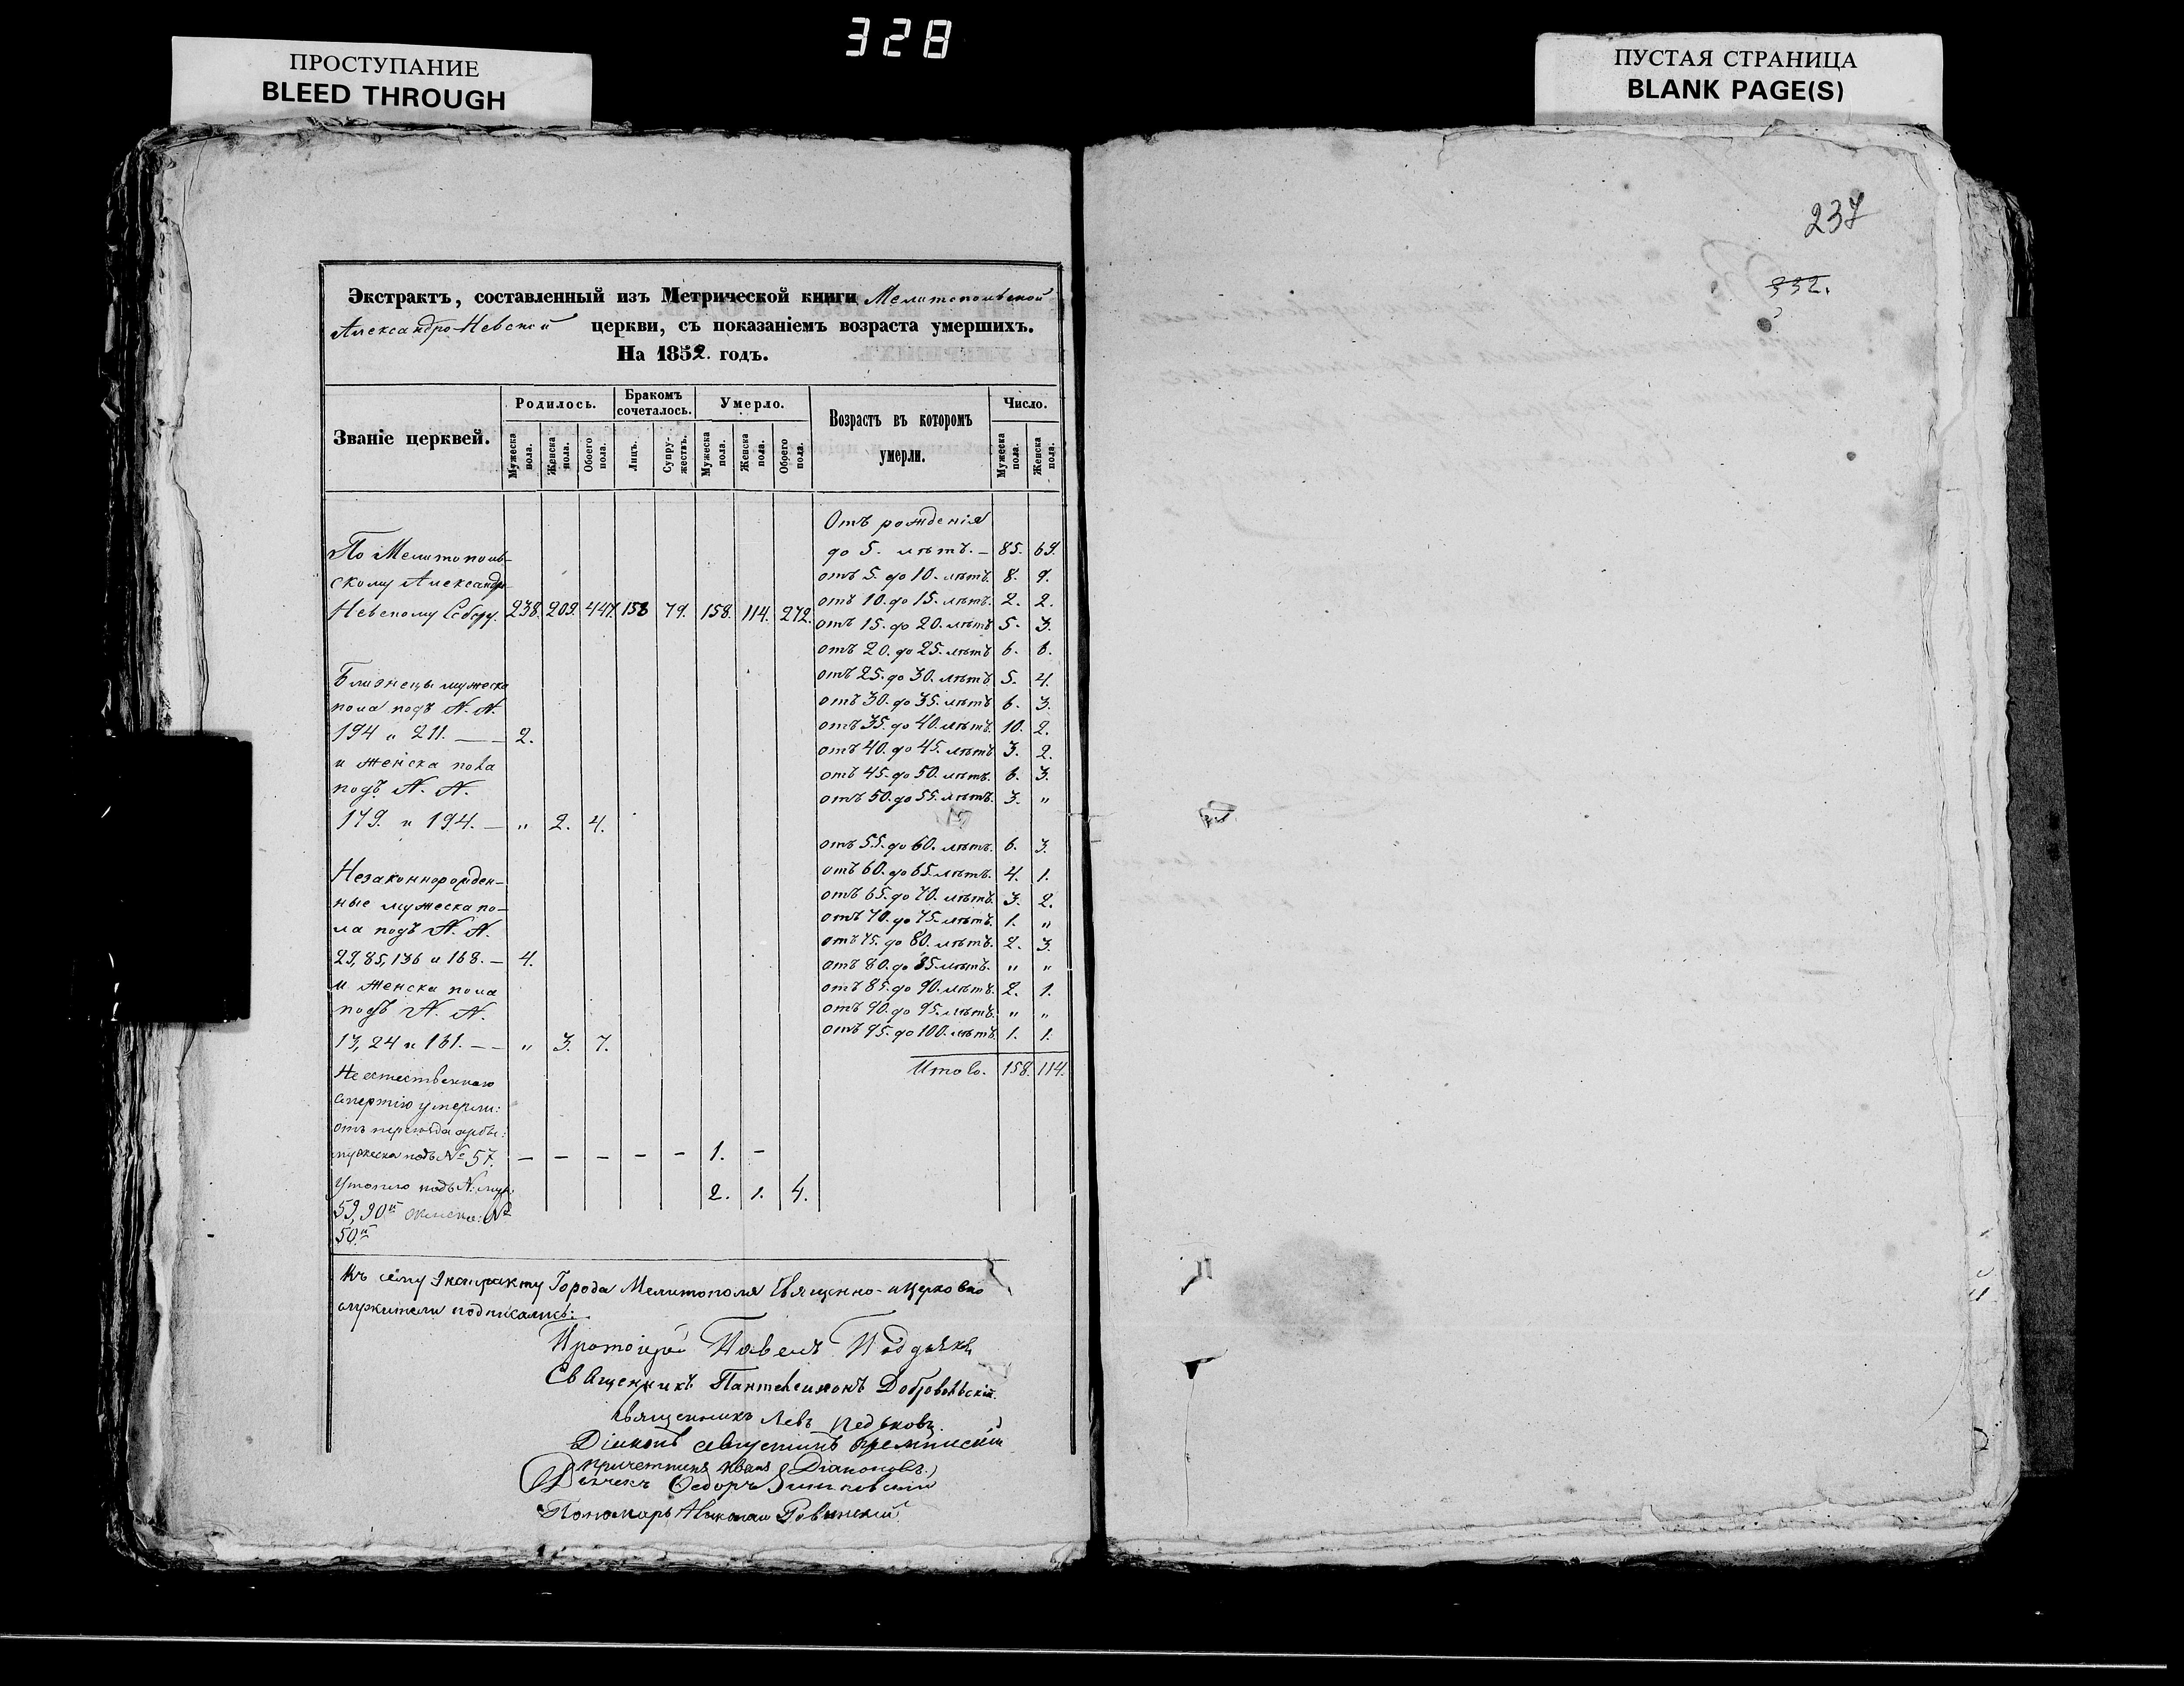 328
ПРОСТУПАНИЕ
BLEED THROUGH
ПУСТАЯ СТРАНИЦА
BLANK PAGE(S)
237
332.
Экстрактъ, составленный изъ Метрической книги Мелитопольской
Александро-Невской церкви, съ показаніемъ возраста умершихъ.
На 1852. годъ.
Званіе церквей.
Родилось.
Бракомъ сочеталось.
Умерло.
Возрастъ въ которомъ умерли.
Число.
Мужеска пола.
Женска пола.
Обоего пола.
Лицъ.
Супружествъ.
Мужеска пола.
Женска пола.
Обоего пола.
Мужеска пола.
Женска пола.
По Мелитополь-
скому Александро
Невскому Собору. 238. 209. 447. 158 79. 158. 114. 272.
Близнецы мужеска
пола подъ N. N.
194 и 211. — 2.
и женска пола
подъ N. N.
179. и 194. — „ 2. 4.
Незаконнорожден-
ные мужеска по-
ла подъ N. N.
29, 85, 136 и 168. — 4.
и женска пола
подъ N. N.
13, 24 и 131. — „ 3. 7.
Неестественною
смертію умерли:
отъ переезда арбы:
мужеска подъ № 57. — — — — — 1. —
Утопло подъ N: муж:
59, 90й женска: № 2. 1. 4.
50й
Отъ рожденія
до 5. лѣтъ. — 85. 69.
отъ 5. до 10. лѣтъ. 8. 9.
отъ 10. до 15. лѣтъ. 2. 2.
отъ 15. до 20. лѣтъ 5. 3.
отъ 20. до 25. лѣтъ 6. 6.
отъ 25. до 30. лѣтъ 5. 4.
отъ 30. до 35. лѣтъ 6. 3.
отъ 35. до 40. лѣтъ. 10. 2.
отъ 40. до 45. лѣтъ 3. 2.
отъ 45. до 50. лѣтъ. 6. 3.
отъ 50. до 55. лѣтъ. 3. „
отъ 55. до 60. лѣтъ. 6. 3.
отъ 60. до 65. лѣтъ. 4. 1.
отъ 65. до 70. лѣтъ. 3. 2.
отъ 70. до 75. лѣтъ. 1. „
отъ 75. до 80. лѣтъ. 2. 3.
отъ 80. до 85 лѣтъ. „ „
отъ 85. до 90. лѣтъ. 2. 1.
отъ 90. до 95. лѣтъ. „ „
отъ 95. до 100. лѣтъ. 1. 1.
Итого. 158. 114.
Къ сему Экстракту Города Мелитополя Священно-и Церковно
служители подписались:
Протоіерей Павелъ
Священникъ Пантелеимонъ Добровольскій.
Священникъ Левъ
Діаконъ Августинъ
Причетникъ Иванъ Діаконовъ.
Дьячекъ Ѳедоръ
Пономарь Николай Ровинскій.